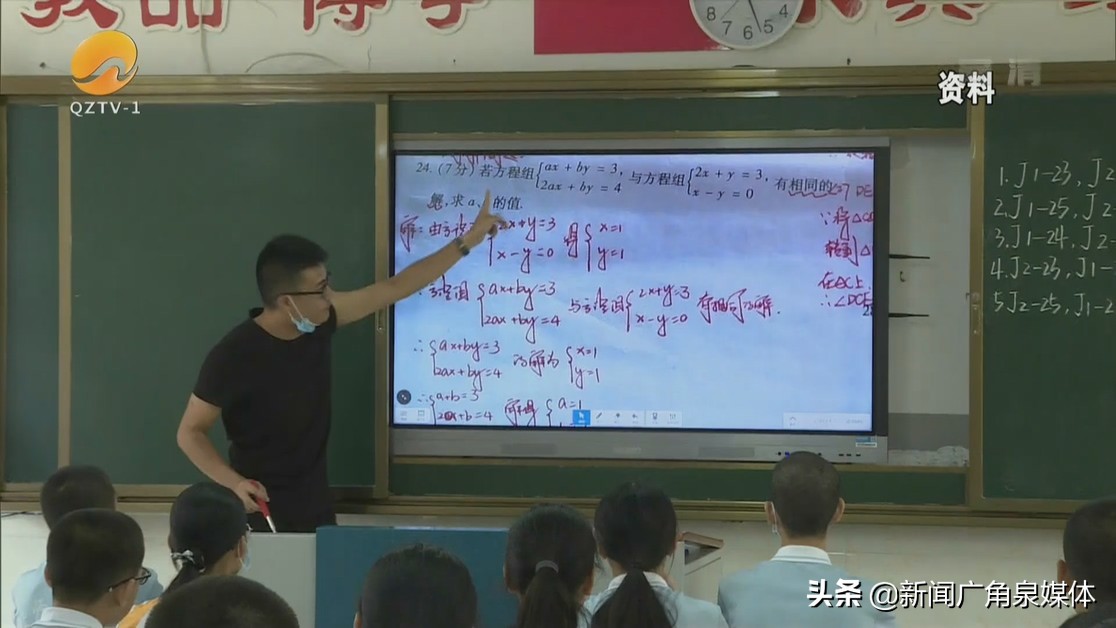 博学
8 7 6 5 4
QZTV-1
资料
24.(7分)若方程组{ax + by = 3, 2ax + by = 4 与方程组{2x + y = 3, x - y = 0 有相同的
解,求a、 的值.
2x+y=3
x-y=0
x=1
y=1
ax+by=3
2ax+by=4
2x+y=3
x-y=0
有相同的解.
∴{ax+by=3
2ax+by=4
的解为{x=1
y=1
∴{a+b=3
2a+b=4
解得{a=1
1.J1-23, J2
2.J1-25, J2
3.J1-24, J2
4.J2-23, J1-
5.J2-25, J1-2
头条 @新闻广角泉媒体